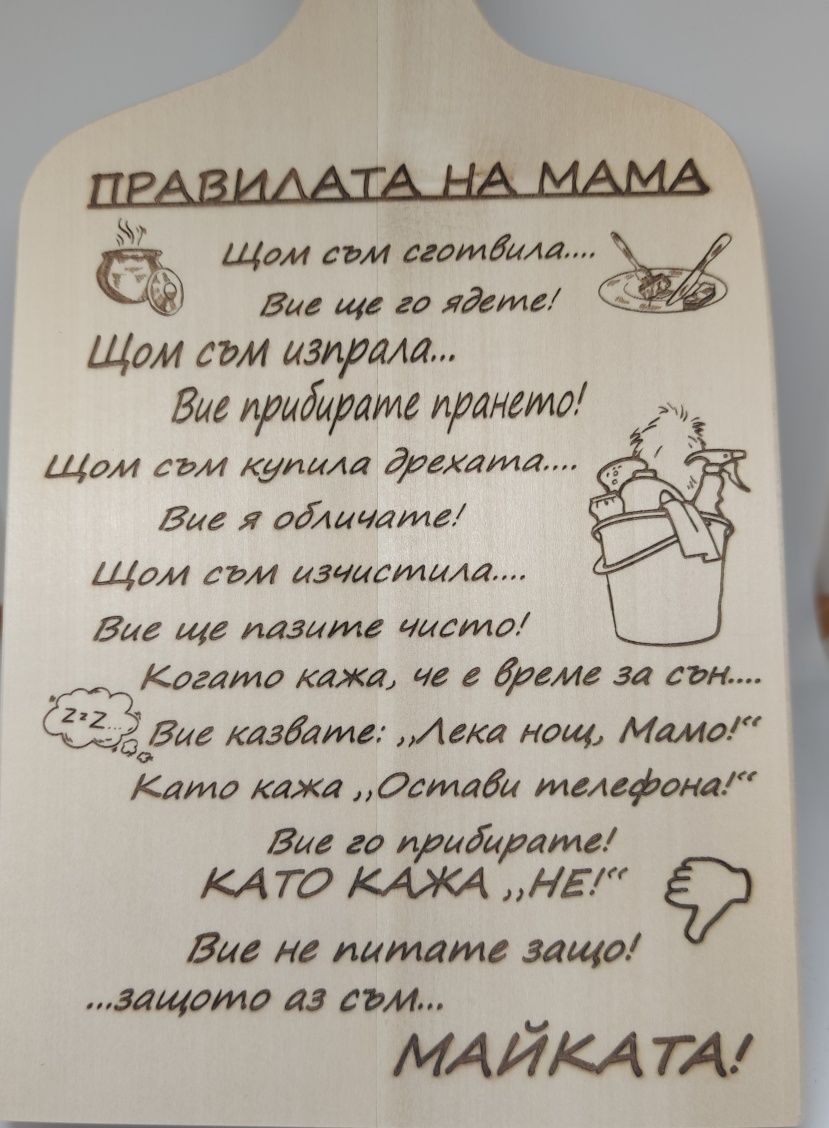 ПРАВИЛАТА НА МАМА
Щом съм сготвила....
Вие ще го ядете!
Щом съм изпрала...
Вие прибирате прането!
Щом съм купила дрехата....
Вие я обличате!
Щом съм изчистила....
Вие ще пазите чисто!
Когато кажа, че е време за сън....
zzz...
Вие казвате: ,,Лека нощ, Мамо!“
Като кажа ,,Остави телефона!“
Вие го прибирате!
КАТО КАЖА ,,НЕ!“
Вие не питате защо!
...защото аз съм...
МАЙКАТА!